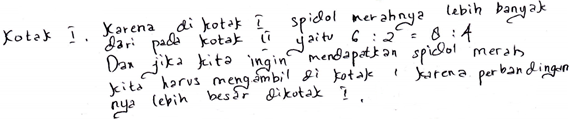 Kotak I. Karena di kotak I spidol merahnya lebih banyak
dari pada kotak II yaitu 6 : 2 = 8 : 4
Dan jika kita ingin mendapatkan spidol merah
kita harus mengambil di kotak 1 karena perbandingan
nya lebih besar dikotak I.